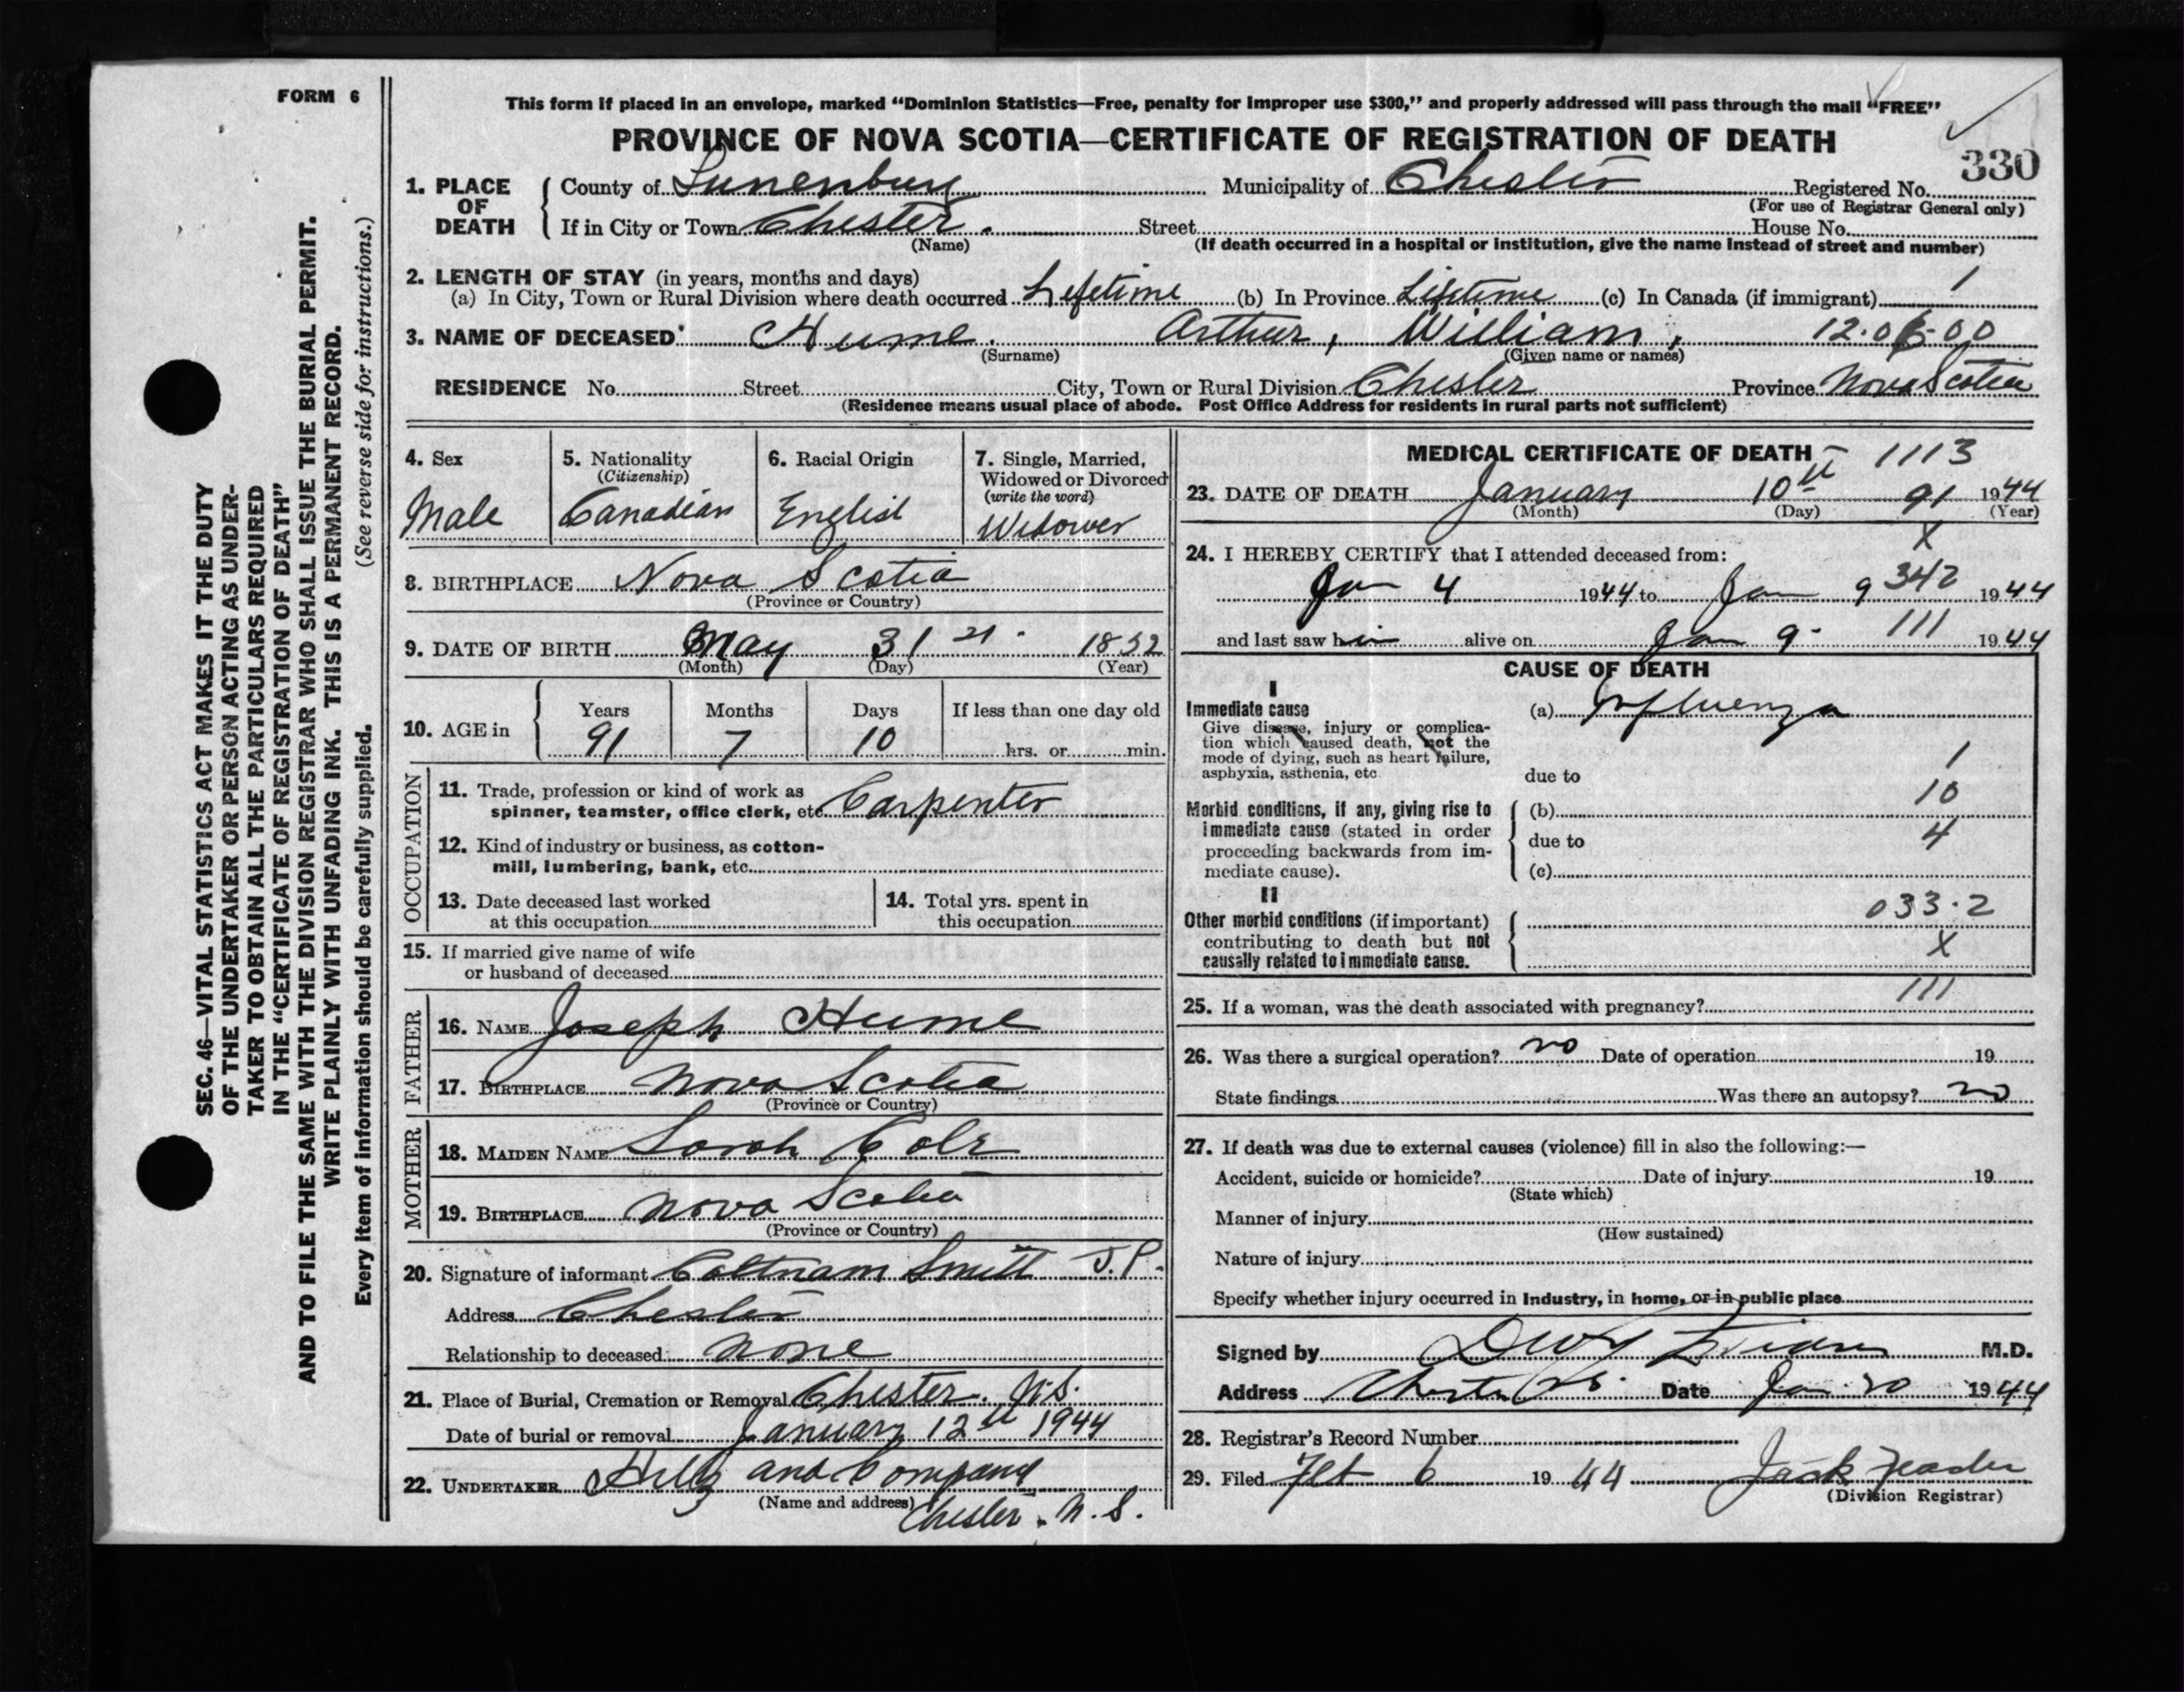 FORM 6
This form if placed in an envelope, marked “Dominion Statistics—Free, penalty for improper use $300,” and properly addressed will pass through the mail “FREE”
PROVINCE OF NOVA SCOTIA—CERTIFICATE OF REGISTRATION OF DEATH
330
1. PLACE OF DEATH
County of Lunenburg Municipality of Chester Registered No.
(For use of Registrar General only)
If in City or Town Chester. Street House No.
(Name) (If death occurred in a hospital or institution, give the name instead of street and number)
2. LENGTH OF STAY (in years, months and days) 1
(a) In City, Town or Rural Division where death occurred Lifetime (b) In Province Lifetime (c) In Canada (if immigrant)
3. NAME OF DECEASED Hume. Arthur, William,
(Surname) (Given name or names)
RESIDENCE No. Street City, Town or Rural Division Chester Province Nova Scotia
(Residence means usual place of abode. Post Office Address for residents in rural parts not sufficient)
4. Sex
Male
5. Nationality
(Citizenship)
Canadian
6. Racial Origin
English
7. Single, Married,
Widowed or Divorced
(write the word)
Widower
8. BIRTHPLACE Nova Scotia
(Province or Country)
9. DATE OF BIRTH May 31 st. 1852
(Month) (Day) (Year)
10. AGE in
Years Months Days If less than one day old
91 7 10 hrs. or min.
OCCUPATION
11. Trade, profession or kind of work as
spinner, teamster, office clerk, etc. Carpenter
12. Kind of industry or business, as cotton-
mill, lumbering, bank, etc.
13. Date deceased last worked
at this occupation
14. Total yrs. spent in
this occupation
15. If married give name of wife
or husband of deceased
FATHER
16. NAME Joseph Hume
17. BIRTHPLACE Nova Scotia
(Province or Country)
MOTHER
18. MAIDEN NAME Sarah Cole
19. BIRTHPLACE Nova Scotia
(Province or Country)
20. Signature of informant Coltnam Smith J.P.
Address Chester
Relationship to deceased None
21. Place of Burial, Cremation or Removal Chester. N.S.
Date of burial or removal January 12th 1944
22. UNDERTAKER and Company
(Name and address) Chester. N.S.
MEDICAL CERTIFICATE OF DEATH 1113
23. DATE OF DEATH January 10th 91 1944
(Month) (Day) (Year)
X
24. I HEREBY CERTIFY that I attended deceased from:
Jan 4 1944 to Jan 9 342 1944
and last saw him alive on Jan 9 111 1944
CAUSE OF DEATH
I
Immediate cause
Give disease, injury or complica-
tion which caused death, not the
mode of dying, such as heart failure,
asphyxia, asthenia, etc
(a) Influenza
1
due to
10
Morbid conditions, if any, giving rise to
immediate cause (stated in order
proceeding backwards from im-
mediate cause).
(b)
due to 4
(c)
II
Other morbid conditions (if important)
contributing to death but not
causally related to immediate cause.
033.2
X
25. If a woman, was the death associated with pregnancy? 111
26. Was there a surgical operation? no Date of operation 19
State findings Was there an autopsy? no
27. If death was due to external causes (violence) fill in also the following:—
Accident, suicide or homicide? Date of injury 19
(State which)
Manner of injury
(How sustained)
Nature of injury
Specify whether injury occurred in Industry, in home, or in public place
Signed by M.D.
Address Chester N.S. Date Jan 1944
28. Registrar's Record Number
29. Filed Feb 6 1944 Jack
(Division Registrar)
SEC. 46—VITAL STATISTICS ACT MAKES IT THE DUTY
OF THE UNDERTAKER OR PERSON ACTING AS UNDER-
TAKER TO OBTAIN ALL THE PARTICULARS REQUIRED
IN THE “CERTIFICATE OF REGISTRATION OF DEATH”
AND TO FILE THE SAME WITH THE DIVISION REGISTRAR WHO SHALL ISSUE THE BURIAL PERMIT.
WRITE PLAINLY WITH UNFADING INK. THIS IS A PERMANENT RECORD.
Every item of information should be carefully supplied. (See reverse side for instructions.)